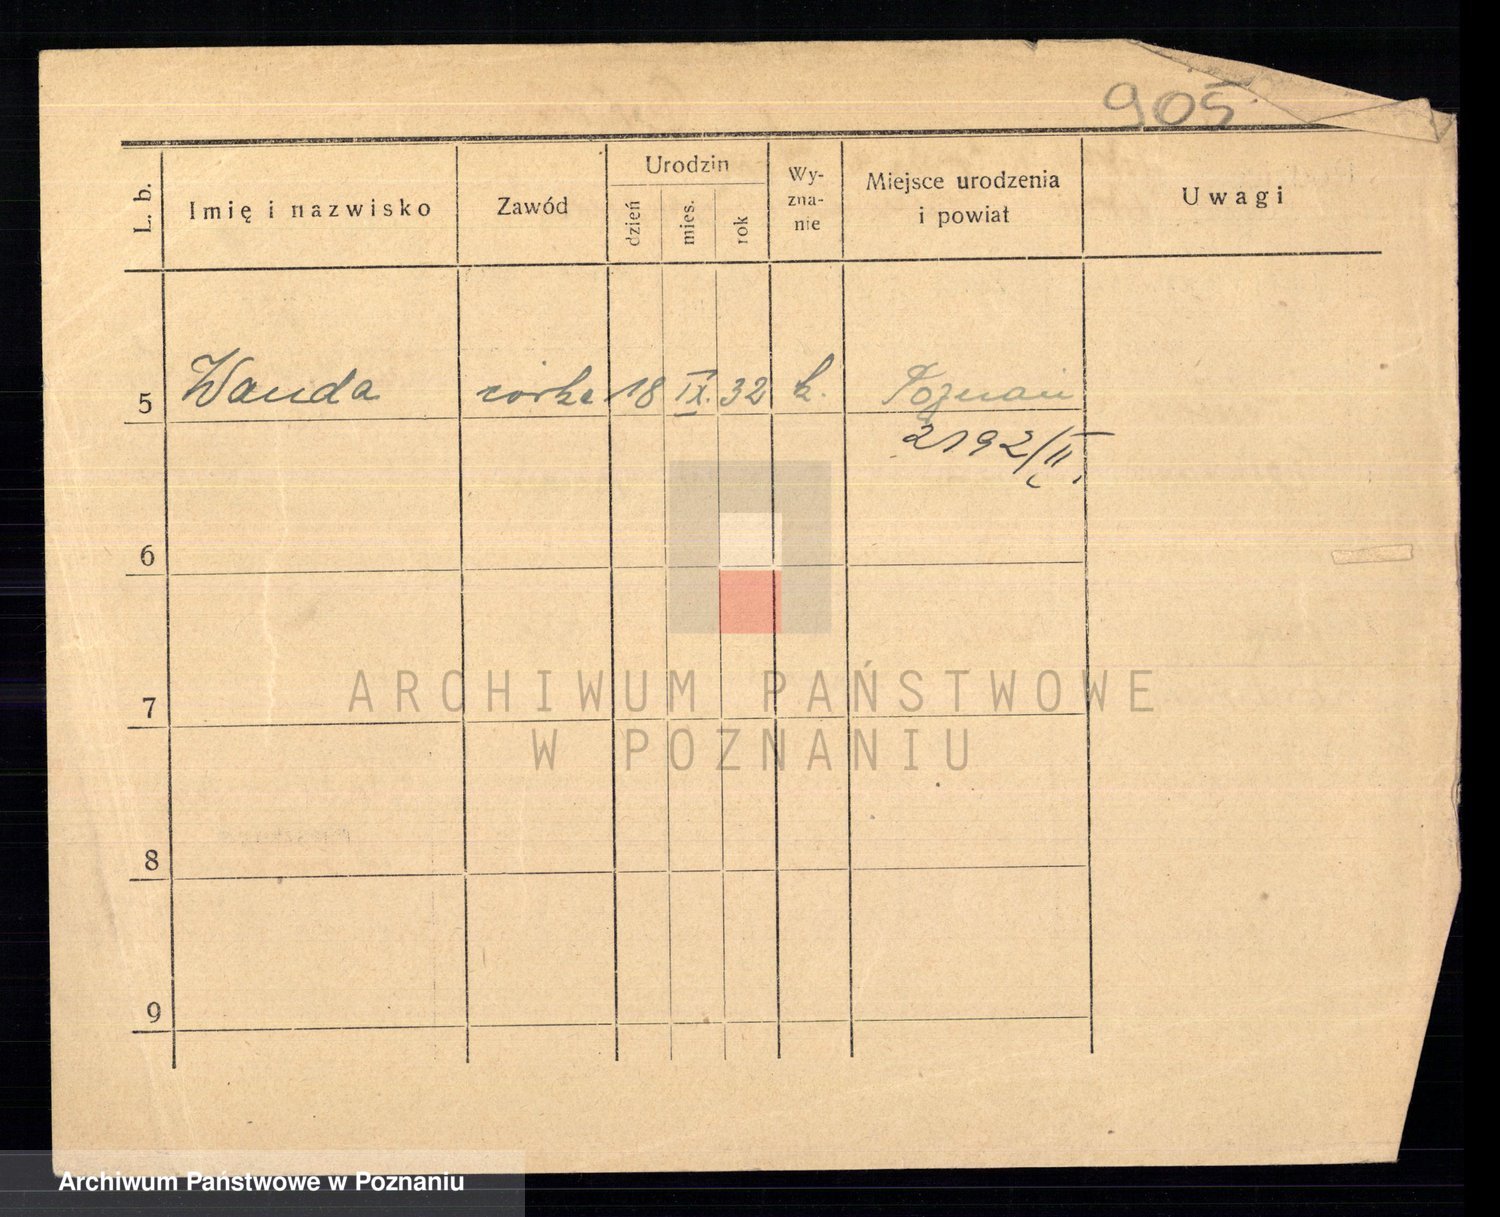 905
L. b.
Imię i nazwisko
Zawód
Urodzin
dzień
mies.
rok
Wy-
zna-
nie
Miejsce urodzenia
i powiat
Uwagi
5 Wanda córka 18 IX. 32 k. Poznań
2192/II.
6
7
8
9
ARCHIWUM PAŃSTWOWE
W POZNANIU
Archiwum Państwowe w Poznaniu